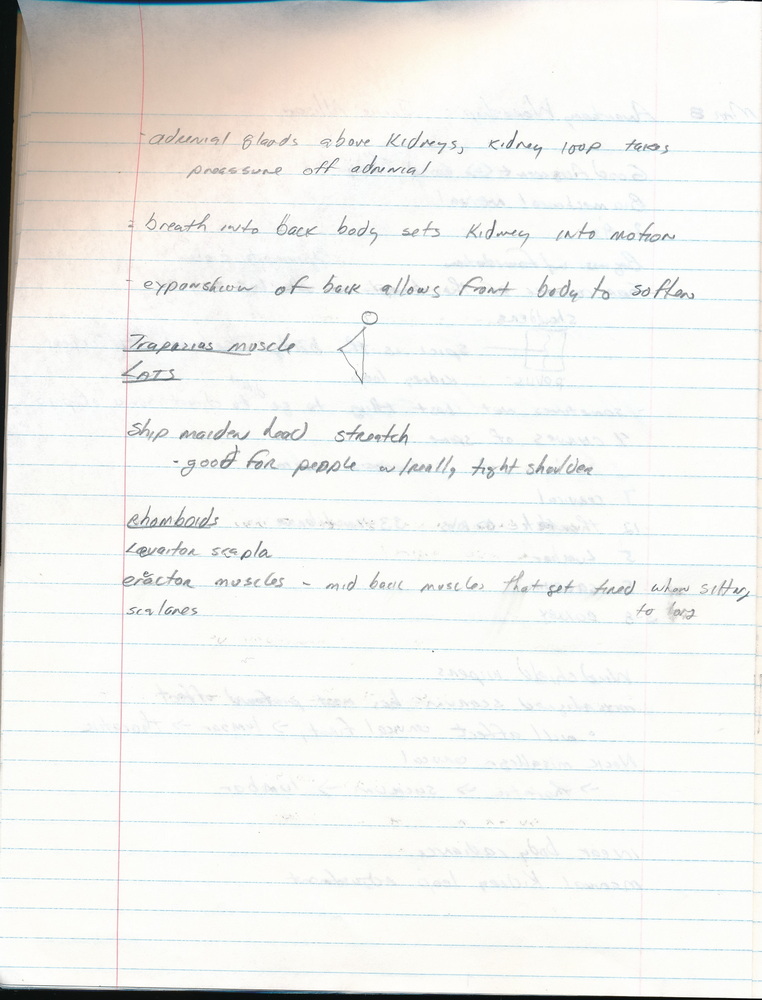 - adrenial glands above Kidneys, kidney loop takes
presssure off adrunial
- breath into back body sets Kidney into motion
- expanshion of back allows front body to soften
Trapazias muscle
LATS
Ship maiden head streatch
- good for people w/really tight shoulder
rhomboids
Levartor scapla
erector muscles - mid back muscles that get tired when sitting
to long
scalanes